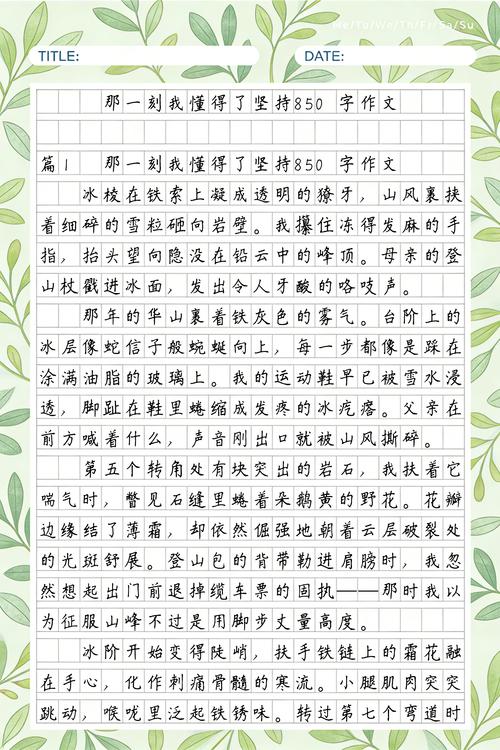 Me/Tu/We/Th/Fr/Sa/Su
TITLE:
DATE:
那一刻我懂得了坚持850 字作文
篇1 那一刻我懂得了坚持850 字作文
冰棱在铁索上凝成透明的獠牙，山风裹挟
着细碎的雪粒砸向岩壁。我攥住冻得发麻的手
指，抬头望向隐没在铅云中的峰顶。母亲的登
山杖戳进冰面，发出令人牙酸的咯吱声。
那年的华山裹着铁灰色的雾气。台阶上的
冰层像蛇信子般蜿蜒向上，每一步都像是踩在
涂满油脂的玻璃上。我的运动鞋早已被雪水浸
透，脚趾在鞋里蜷缩成发疼的冰疙瘩。父亲在
前方喊着什么，声音刚出口就被山风撕碎。
第五个转角处有块突出的岩石，我扶着它
喘气时，瞥见石缝里蜷着朵鹅黄的野花。花瓣
边缘结了薄霜，却依然倔强地朝着云层破裂处
的光斑舒展。登山包的背带勒进肩膀时，我忽
然想起出门前退掉缆车票的固执——那时我以
为征服山峰不过是用脚步丈量高度。
冰阶开始变得陡峭，扶手铁链上的霜花融
在手心，化作刺痛骨髓的寒流。小腿肌肉突突
跳动，喉咙里泛起铁锈味。转过第七个弯道时